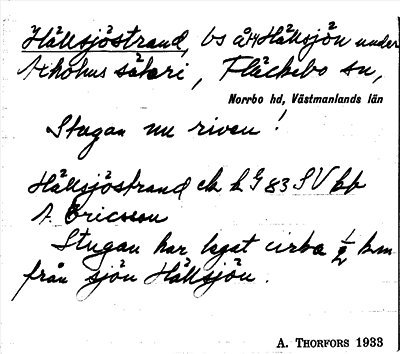 Hällsjöstrand, bs å Hällsjön under
säteri, Fläckebo sn,
Norrbo hd, Västmanlands län
Stugan nu riven!
Hällsjöstrand ek h G 83 SV bp
A Ericsson
Stugan har legat cirka ½ km
från sjön Hällsjön.
A. THORFORS 1933